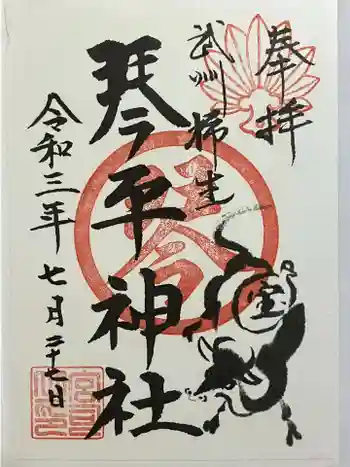 奉拝
武州柿生
琴平神社
令和三年
七月二十七日
金
宝